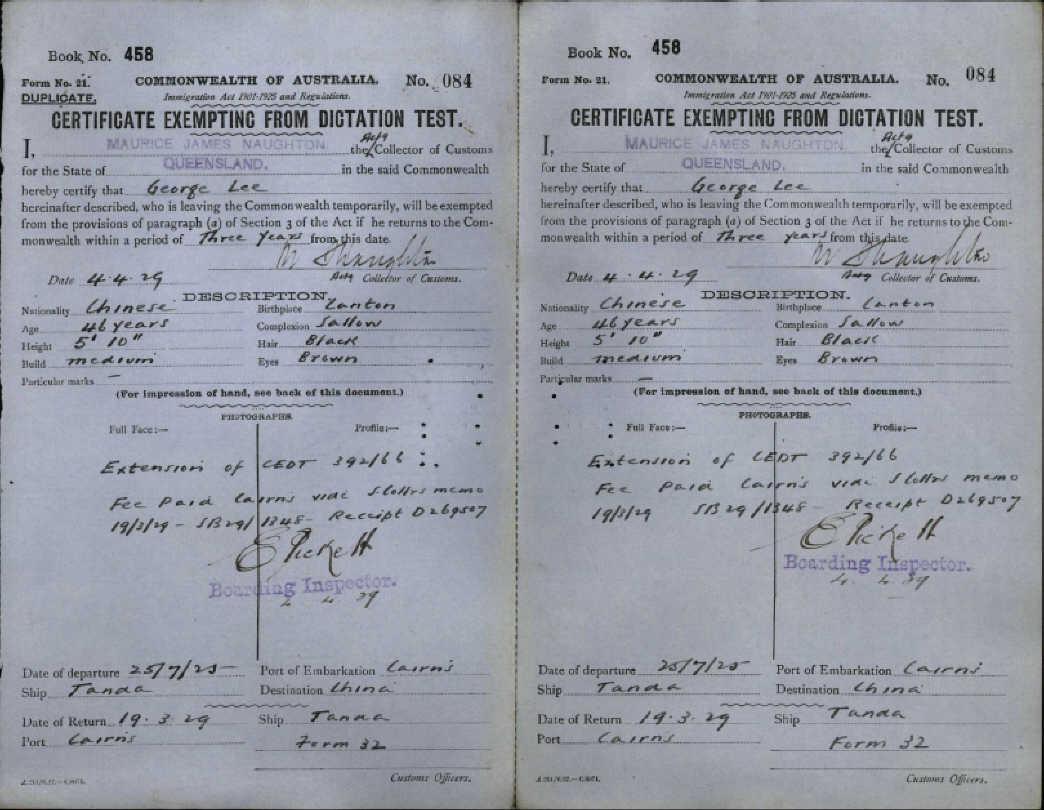 Book No. 458
Form No. 21.
DUPLICATE.
COMMONWEALTH OF AUSTRALIA.
No. 084
Immigration Act 1901-1925 and Regulations.
CERTIFICATE EXEMPTING FROM DICTATION TEST.
I, MAURICE JAMES NAUGHTON the Actg Collector of Customs
for the State of QUEENSLAND. in the said Commonwealth
hereby certify that George Lee
hereinafter described, who is leaving the Commonwealth temporarily, will be exempted
from the provisions of paragraph (a) of Section 3 of the Act if he returns to the Com-
monwealth within a period of Three Years from this date
Date 4.4.29 Actg Collector of Customs.
DESCRIPTION.
Nationality Chinese Birthplace Canton
Age 46 years Complexion Sallow
Height 5' 10" Hair Black
Build medium Eyes Brown
Particular marks —
(For impression of hand, see back of this document.)
PHOTOGRAPHS.
Full Face:— Profile:—
Extension of CEDT 392/66
Fee Paid Cairns vide memo
19/3/29 - SB29/1348 - Receipt D269507
E Pickett
Boarding Inspector.
4 4 29
Date of departure 25/7/25 Port of Embarkation Cairns
Ship Tanda Destination China
Date of Return 19.3.29 Ship Tanda
Port Cairns Form 32
Customs Officers.
Book No. 458
Form No. 21.
COMMONWEALTH OF AUSTRALIA.
No. 084
Immigration Act 1901-1925 and Regulations.
CERTIFICATE EXEMPTING FROM DICTATION TEST.
I, MAURICE JAMES NAUGHTON. the Actg Collector of Customs
for the State of QUEENSLAND. in the said Commonwealth
hereby certify that George Lee
hereinafter described, who is leaving the Commonwealth temporarily, will be exempted
from the provisions of paragraph (a) of Section 3 of the Act if he returns to the Com-
monwealth within a period of Three years from this date
Date 4.4.29 Actg Collector of Customs.
DESCRIPTION.
Nationality Chinese Birthplace Canton
Age 46 years Complexion Sallow
Height 5' 10" Hair Black
Build medium Eyes Brown
Particular marks —
(For impression of hand, see back of this document.)
PHOTOGRAPHS.
Full Face:— Profile:—
Extension of CEDT 392/66
Fee Paid Cairns vide memo
19/3/29 SB29/1348 - Receipt D269507
E Pickett
Boarding Inspector.
4. 4. 29
Date of departure 25/7/25 Port of Embarkation Cairns
Ship Tanda Destination China
Date of Return 19.3.29 Ship Tanda
Port Cairns Form 32
Customs Officers.